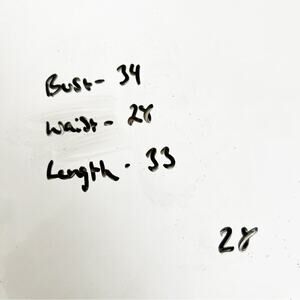 Bust- 34
Waist- 28
Length- 33
28